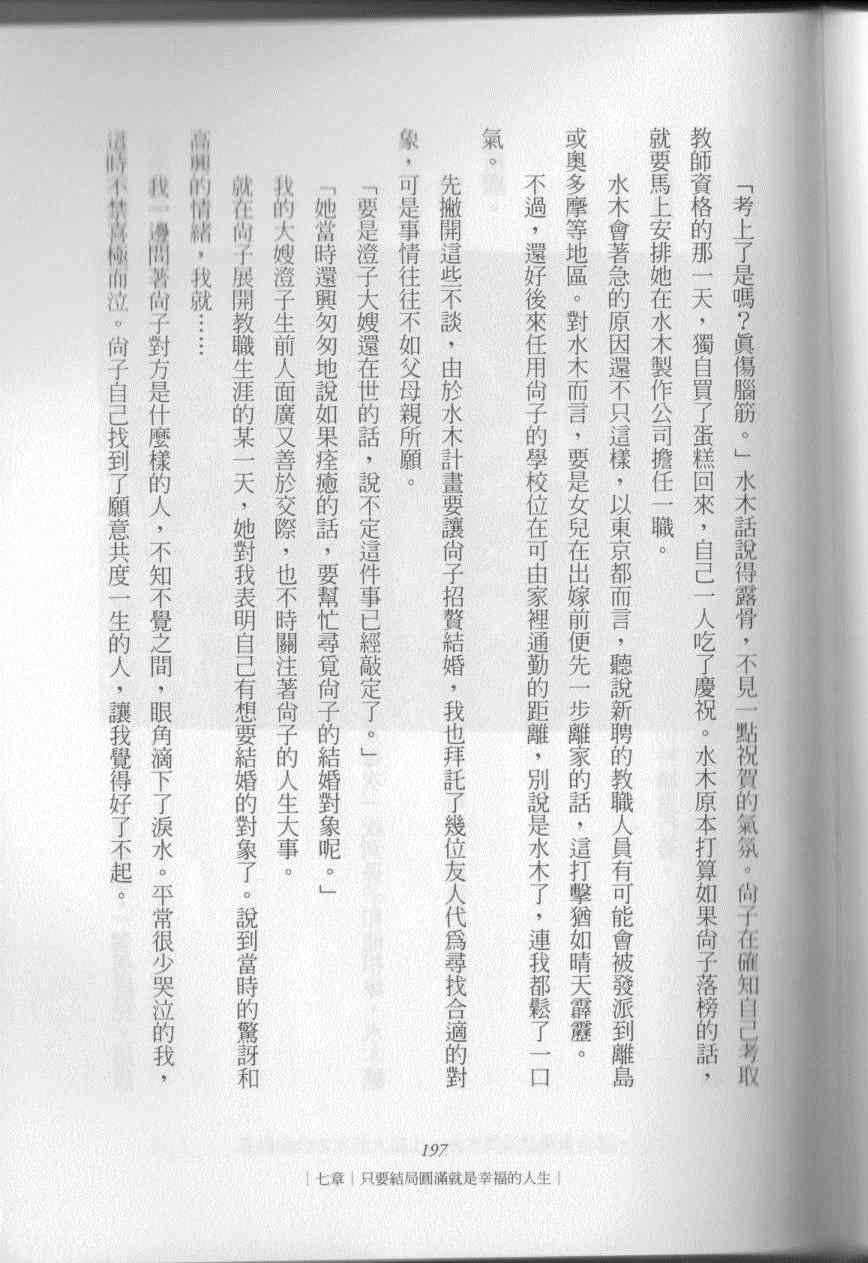 「考上了是嗎？眞傷腦筋。」水木話說得露骨，不見一點祝賀的氣氛。尙子在確知自己考取
教師資格的那一天，獨自買了蛋糕回來，自己一人吃了慶祝。水木原本打算如果尙子落榜的話，
就要馬上安排她在水木製作公司擔任一職。
水木會著急的原因還不只這樣，以東京都而言，聽說新聘的教職人員有可能會被發派到離島
或奧多摩等地區。對水木而言，要是女兒在出嫁前便先一步離家的話，這打擊猶如晴天霹靂。
不過，還好後來任用尙子的學校位在可由家裡通勤的距離，別說是水木了，連我都鬆了一口
氣。
先撇開這些不談，由於水木計畫要讓尙子招贅結婚，我也拜託了幾位友人代爲尋找合適的對
象，可是事情往往不如父母親所願。
「要是澄子大嫂還在世的話，說不定這件事已經敲定了。」
「她當時還興匆匆地說如果痊癒的話，要幫忙尋覓尙子的結婚對象呢。」
我的大嫂澄子生前人面廣又善於交際，也不時關注著尙子的人生大事。
就在尙子展開教職生涯的某一天，她對我表明自己有想要結婚的對象了。說到當時的驚訝和
高興的情緒，我就……
我一邊問著尙子對方是什麼樣的人，不知不覺之間，眼角滴下了淚水。平常很少哭泣的我，
這時不禁喜極而泣。尙子自己找到了願意共度一生的人，讓我覺得好了不起。
197
｜七章｜只要結局圓滿就是幸福的人生｜